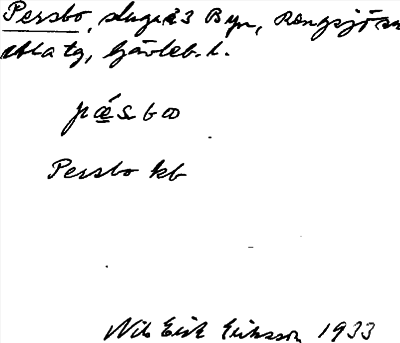 Persbo, stuga å 3 Byn, Rengsjö sn
Alla tg, Gävleb. l.
pæ̂sboo
Persbo kb
Nils Eric Eriksson 1933